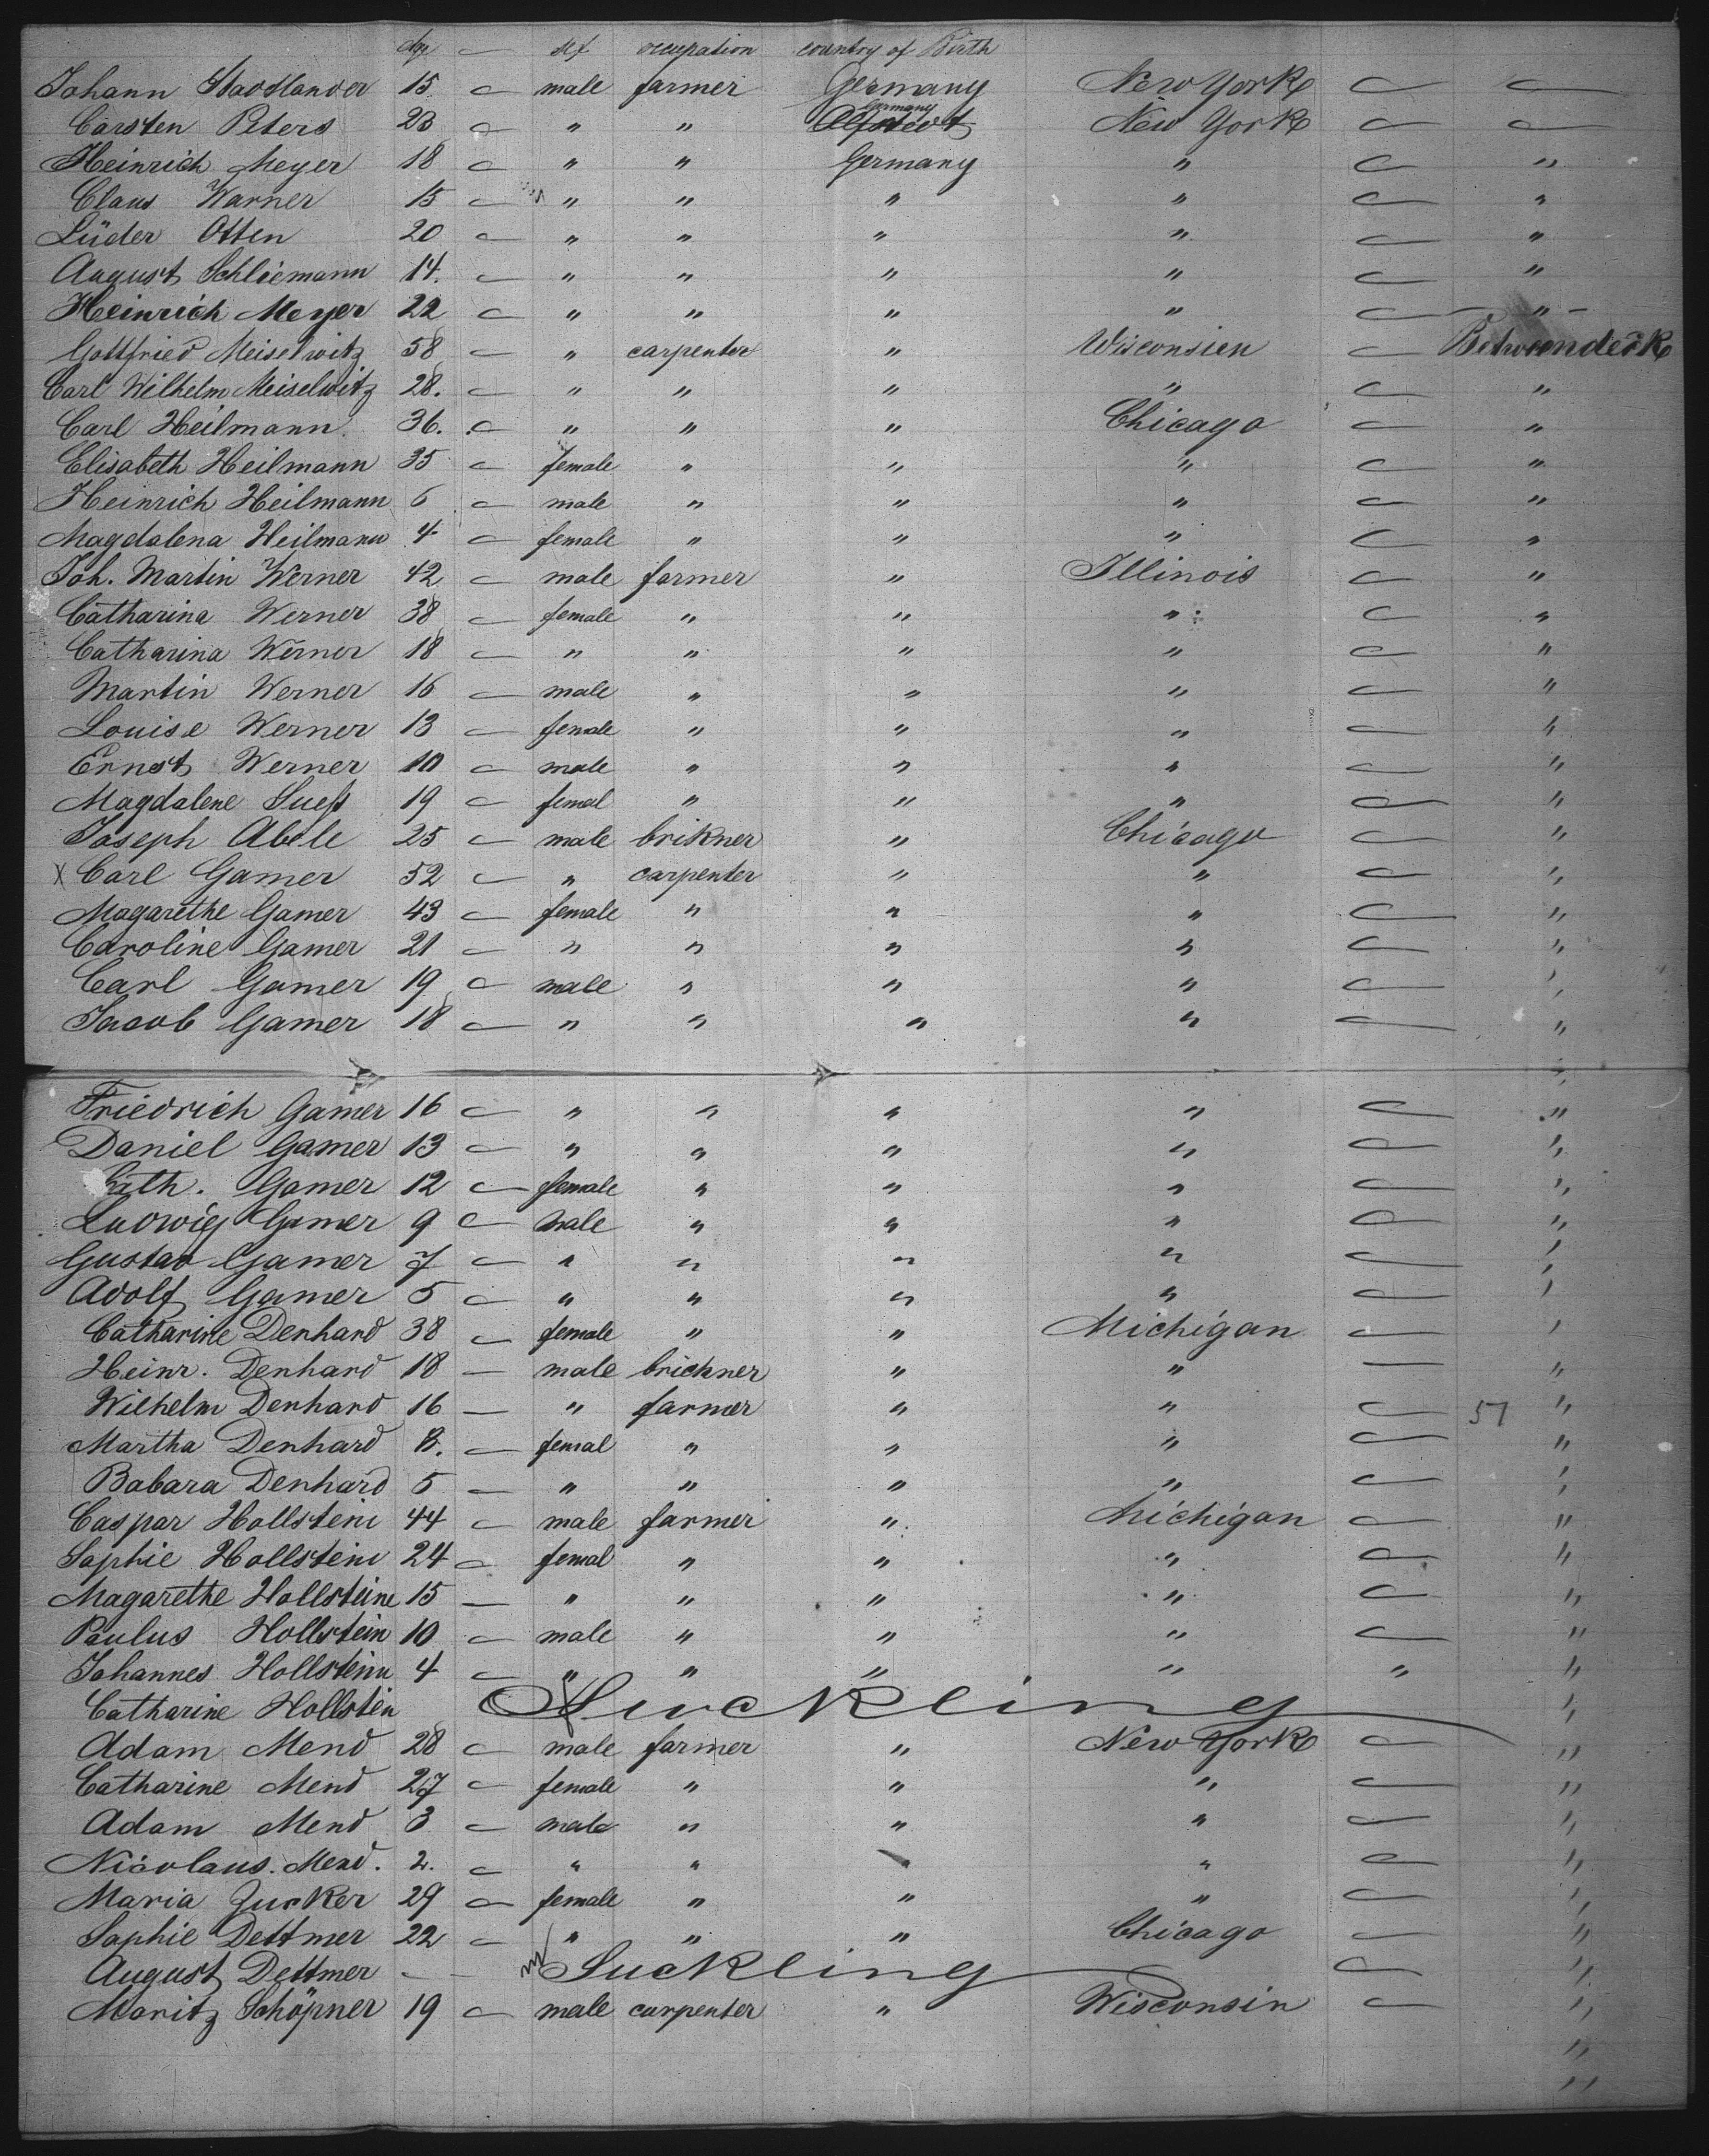 Age — sex occupation country of Birth
Johann Stadtlander 15. — male farmer Germany New York — —
Germany
Carsten Peters 23 — " " New York — —
Heinrich Meyer 18 — " " Germany " — "
Claus Warner 15 — " " " " — "
Lüder Otten 20 — " " " " — "
August Schliemann 14. — " " " " — "
Heinrich Meyer 22 — " " " " — "
Gottfried Meiselwitz 58 — " carpenter " Wisconsien — Betweendeck
Carl Wilhelm Meiselwitz 28. — " " " " — "
Carl Heilmann 36. — " " " Chicago — "
Elisabeth Heilmann 35 — female " " " — "
Heinrich Heilmann 6 — male " " " — "
Magdalena Heilmann 4 — female " " " — "
Joh. Martin Werner 42 — male farmer " Illinois — "
Catharina Werner 38 — female " " " — "
Catharina Werner 18 — " " " " — "
Martin Werner 16 — male " " " — "
Louise Werner 13 — female " " " — "
Ernst Werner 10 — male " " " — "
Magdalene Sueß 19 — femal " " " — "
Joseph Abele 25 — male brikner " Chicago — "
X Carl Gamer 52 — " carpenter " " — "
Magarethe Gamer 43 — female " " " — "
Caroline Gamer 21 — " " " " — "
Carl Gamer 19 — male " " " — "
Jacob Gamer 18 — " " " " — "
Friedrich Gamer 16 — " " " " — "
Daniel Gamer 13 — " " " " — "
Cath. Gamer 12 — female " " " — "
Ludwig Gamer 9 — male " " " — "
Gustav Gamer 7 — " " " " — "
Adolf Gamer 5 — " " " " — "
Catharine Denhard 38 — female " " Michigan — "
Heinr. Denhard 18 — male brickner " " — "
Wilhelm Denhard 16 — " farmer " " — 51 "
Martha Denhard — femal " " " — "
Babara Denhard 5 — " " " " — "
Caspar Hollstein 44 — male farmer " Michigan — "
Sophie Hollstein 24 — femal " " " — "
Magarethe Hollsteine 15 — " " " " — "
Paulus Hollstein 10 — male " " " — "
Johannes Hollstein 4 — " " " " " "
Catharine Hollstein Suckling "
Adam Mend 28 — male farmer " New York — "
Catharine Mend 27 — female " " " — "
Adam Mend 3 — male " " " — "
Nicolaus. Mend. 2. — " " " " — "
Maria Zucker 29 — female " " " — "
Sophie Dettmer 22 — " " " Chicago — "
August Dettmer — — Suckling — "
Moritz Schöpner 19 — male carpenter " Wisconsin — "
"
"